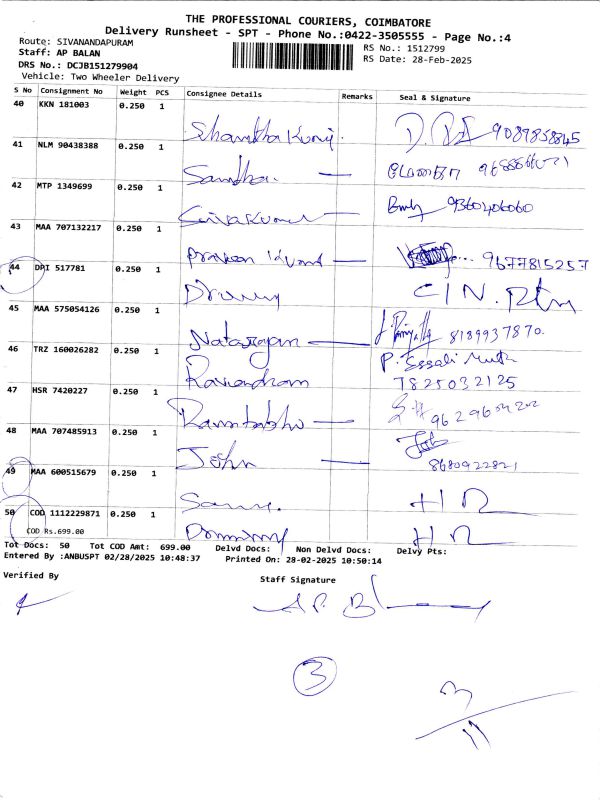 THE PROFESSIONAL COURIERS, COIMBATORE
Delivery Runsheet - SPT - Phone No.:0422-3505555 - Page No.:4
Route: SIVANANDAPURAM
RS No.: 1512799
Staff: AP BALAN
RS Date: 28-Feb-2025
DRS No.: DCJB151279904
Vehicle: Two Wheeler Delivery
S No Consignment No Weight PCS Consignee Details Remarks Seal & Signature
40 KKN 181003 0.250 1 9089858845
41 NLM 90438388 0.250 1 Santha.
42 MTP 1349699 0.250 1 Sivakumar 9360406060
43 MAA 707132217 0.250 1 Praveen Kumar 9677815257
44 DPI 517781 0.250 1 C/N. Rtn
45 MAA 575054126 0.250 1 Natarajan 8189937870.
46 TRZ 160026282 0.250 1 7825032125
47 HSR 7420227 0.250 1
48 MAA 707485913 0.250 1 John 8680922821
49 MAA 600515679 0.250 1
50 COD 1112229871 0.250 1
COD Rs.699.00
Tot Docs: 50 Tot COD Amt: 699.00 Delvd Docs: Non Delvd Docs: Delvy Pts:
Entered By :ANBUSPT 02/28/2025 10:48:37 Printed On: 28-02-2025 10:50:14
Verified By
Staff Signature
A P. B
3
3
11